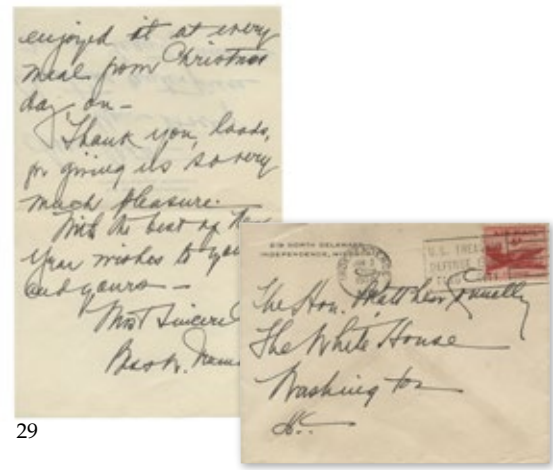 enjoyed it at every
meal from Christmas
day on -
Thank you, loads,
for giving us so very
much pleasure.
With the best of New
Year wishes to you
and yours -
Most Sincerel
Bess W.
219 NORTH DELAWARE
INDEPENDENCE, MISSOURI
U.S. TREAS
DEFENSE
The Hon. Matthew Connelly
The White House
Washington
D.C.
29